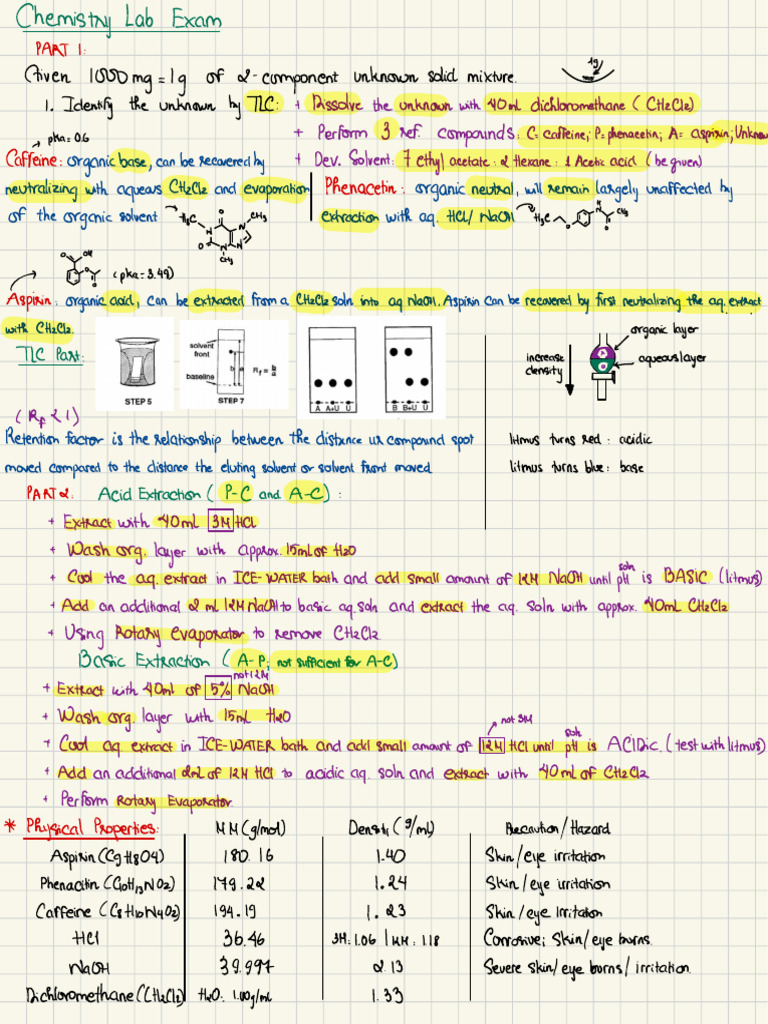 Chemistry Lab Exam
PART 1:
Given 1000mg = 1g of 2-component unknown solid mixture.
1g
1. Identify the unknown by TLC: + Dissolve the unknown with 40mL dichloromethane (CH2Cl2)
+ Perform 3 ref. compounds: C= caffeine; P= phenacetin; A= aspirin; Unknown
pka=0.6
+ Dev. Solvent: 7 ethyl acetate : 2 Hexane : 1 Acetic acid (be given)
Caffeine: organic base, can be recovered by
neutralizing with aqueous CH2Cl2 and evaporation
of the organic solvent
H3C O CH3
N N
O N N
CH3
Phenacetin: organic neutral, will remain largely unaffected by
extraction with aq. HCl/NaOH
H3C O H N CH3 O
O OH
O O
(pka=3.49)
Aspirin: organic acid, can be extracted from a CH2Cl2 soln into aq NaOH. Aspirin can be recovered by first neutralizing the aq. extract
with CH2Cl2.
TLC Part:
STEP 5
solvent front
baseline
b a
Rf =
STEP 7
A A+U U
B B+U U
increase density
organic layer
aqueous layer
(Rf < 1)
Retention factor is the relationship between the distance ur compound spot
moved compared to the distance the eluting solvent or solvent front moved
litmus turns red : acidic
litmus turns blue : base
PART 2. Acid Extraction ( P-C and A-C) :
+ Extract with 40mL 3M HCl
+ Wash org. layer with approx. 15ml of H2O
+ Cool the aq. extract in ICE-WATER bath and add small amount of 12M NaOH until pH soln is BASIC (litmus)
+ Add an additional 2 mL 12M NaOH to basic aq.soln and extract the aq. soln with approx. 40mL CH2Cl2
+ Using Rotary evaporator to remove CH2Cl2
Basic Extraction ( A-P; not sufficient for A-C)
not 12M
+ Extract with 40ml of 5% NaOH
+ Wash org. layer with 15mL H2O
not 3M
+ Cool aq extract in ICE-WATER bath and add small amount of 12M HCl until pH soln is ACIDIC. (test with litmus)
+ Add an additional 2mL of 12M HCl to acidic aq. soln and extract with 40mL of CH2Cl2
+ Perform Rotary Evaporator
* Physical Properties: MM(g/mol) Densiti (g/ml) Precaution/Hazard
Aspirin (C9H8O4) 180.16 1.40 Skin/eye irritation
Phenacitin (C10H13NO2) 179.22 1.24 Skin/eye irritation
Caffeine (C8H10N4O2) 194.19 1.23 Skin/eye Irritation
HCl 36.46 3M: 1.06 / 12M: 1.18 Corrosive; Skin/eye burns.
NaOH 39.997 2.13 Severe skin/eye burns/irritation.
Dichloromethane (CH2Cl2) H2O: 1.00g/mL 1.33